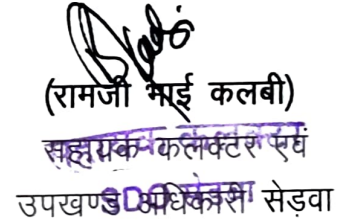 (रामजी भाई कलबी)
सहायक कलक्टर एवं
उपखण्ड अधिकारी सेड़वा